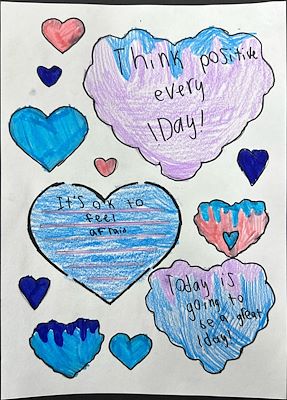 Think positive
every
1Day!
It's ok to
feel
afraid
Today is
going to
be a great
1day!